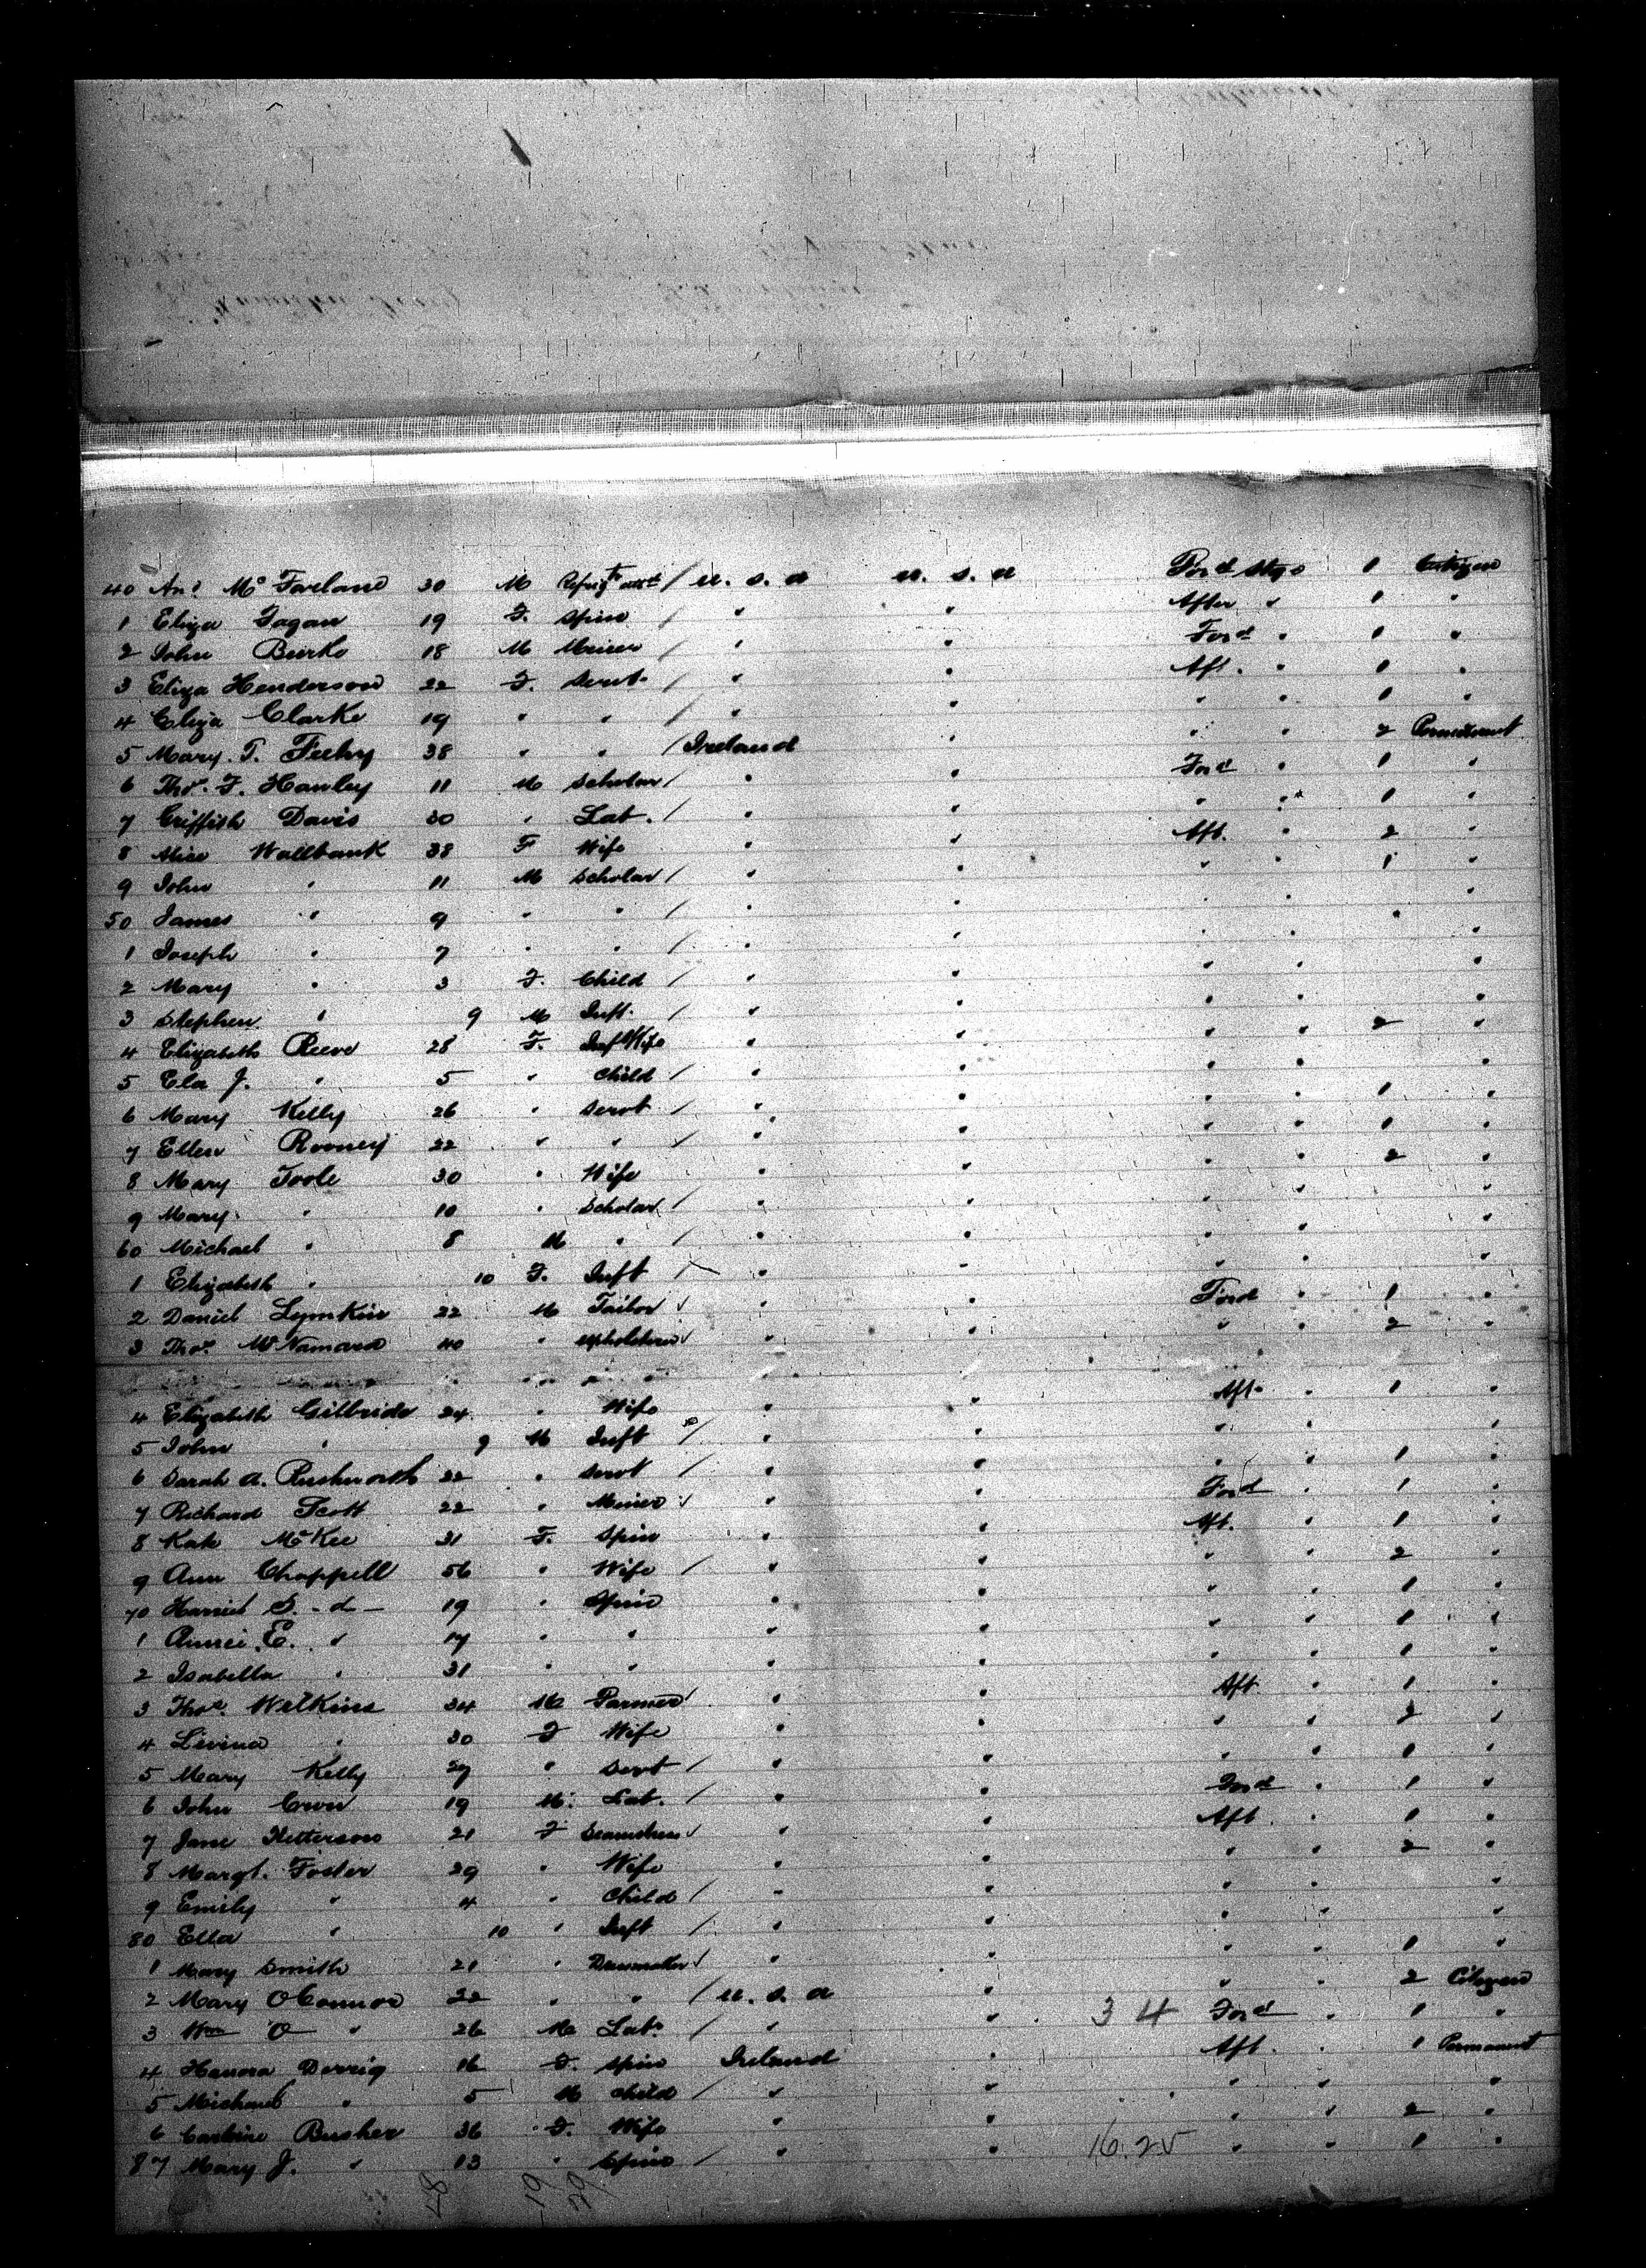 40 And Mc Farland 30 M / U. S. A U. S. A For'd Stge 1 Citizen
1 Eliza Fagan 19 F. Spin / " " After " 1 "
2 John Burke 18 M Miner / " " Ford " 1 "
3 Eliza Henderson 22 F. Servt / " " Aft. " 1 "
4 Eliza Clarke 19 " " / " " " " 1 "
5 Mary. T. Feehy 38 " " / Ireland " " " 2 Permanent
6 Thos. F. Hanley 11 M Scholar / " " Ford " 1 "
7 Griffith Davis 30 " Lab. / " " " " 1 "
8 Alice Wallbank 38 F Wife " " Aft. " 2 "
9 John " 11 M Scholar / " " " " 1 "
50 James " 9 " " / " " " "
1 Joseph " 7 " " / " " " " "
2 Mary " 3 F. Child / " " " " "
3 Stephen " 9 M Inft. / " " " " "
4 Elizabeth Reeve 28 F. Wife " " " " 2 "
5 Ela J. " 5 " Child / " " " " "
6 Mary Kelly 26 " Servt / " " " " 1 "
7 Ellen Rooney 22 " " / " " " " 1 "
8 Mary Toole 30 " Wife " " " " 2 "
9 Mary " 10 " Scholar / " " " " "
60 Michael " 8 M " / " " " " "
1 Elizabeth " 10 F. Inft / " " " " "
2 Daniel Lymkin 22 M Tailor / " " Ford " 1 "
3 Thos. McNamara 40 " Upholsterer / " " " " 2 "
4 Elizabeth Gilbride 24 " Wife " " Aft. " 1 "
5 John " 9 M Inft / " " " " "
6 Sarah A. Rushworth 22 " Servt / " " " " 1 "
7 Richard Scott 22 " Miner / " " Ford " 1 "
8 Kate McKee 31 F. Spin " " Aft. " 1 "
9 Ann Chappell 56 " Wife / " " " " 2 "
70 Harriet S. - d - 19 " Spin " " " " 1 "
1 Annie E. " 17 " " " " " " 1 "
2 Isabella " 31 " " " " " " 1 "
3 Thos. Wilkins 34 M Farmer / " " Aft. " 1 "
4 Livina " 30 F Wife " " " " 2 "
5 Mary Kelly 27 " Servt / " " " " 1 "
6 John 19 M. Lab. / " " Ford " 1 "
7 Jane 21 F Seamstress / " " Aft. " 1 "
8 Margt. Foster 29 " Wife " " " " 2 "
9 Emily " 4 " Child / " " " " "
80 Ella " 10 " Inft / " " " " "
1 Mary Smith 21 " Dressmaker / " " " " 1 "
2 Mary O'Connor 22 " " / U. S. A " " " 2 Citizen
3 Wm O " 26 M Lab. / " " 3 4 Ford " 1 "
4 Hanora Derrig 16 F. Spin Ireland " Aft. " 1 Permanent
5 Michael " 5 M Child / " " " " "
6 Busher 36 F. Wife " " " " 2 "
87 Mary J. " 13 " Spin / " " 16.25 " " 1 "
87 19